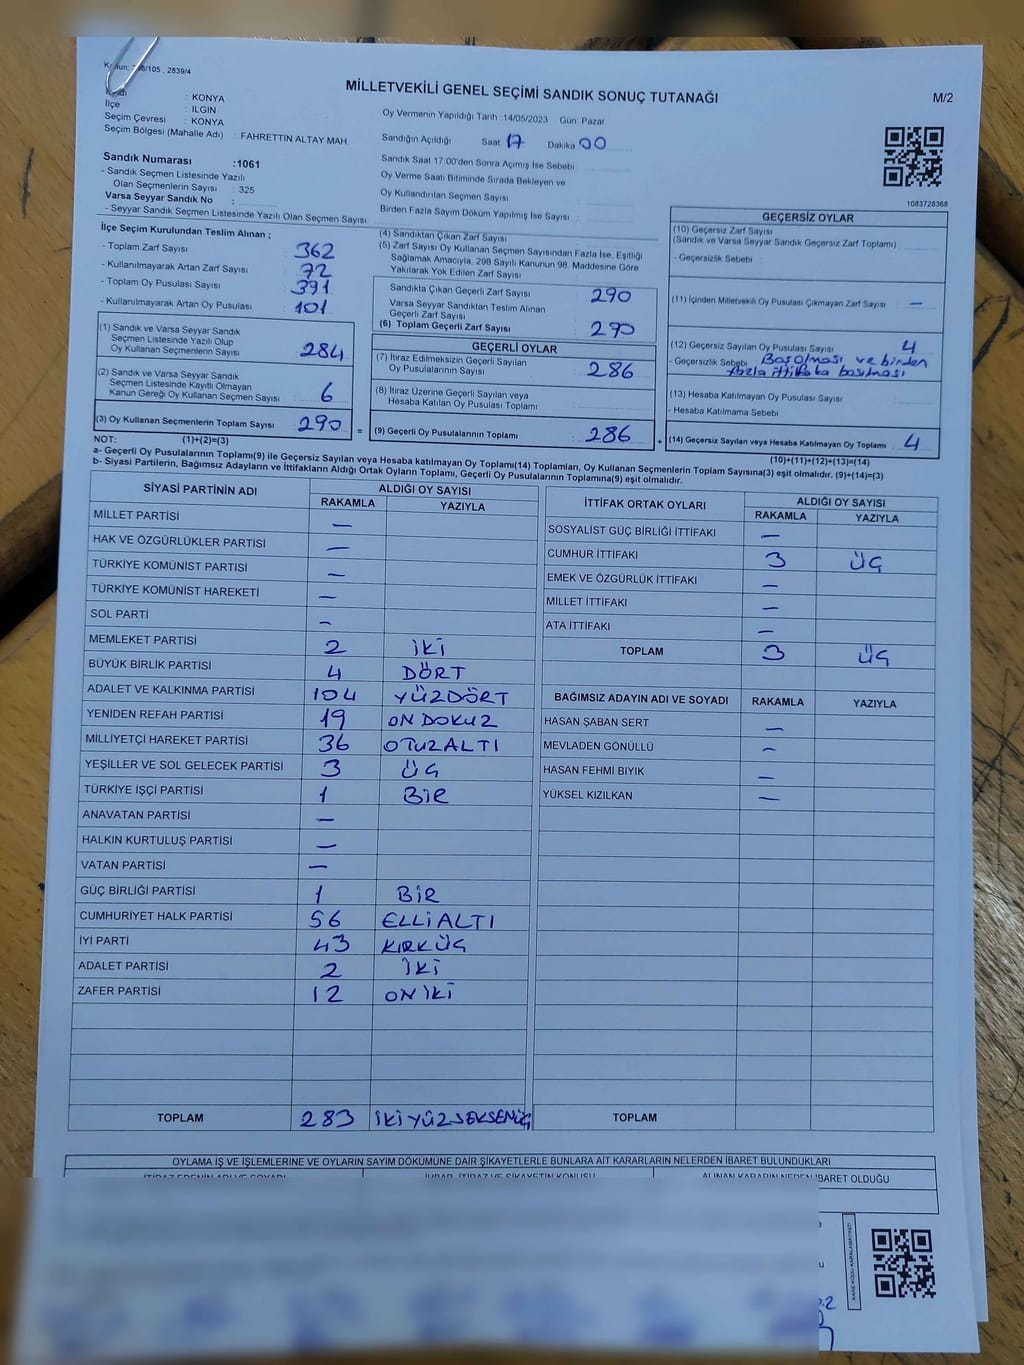 MİLLETVEKİLİ GENEL SEÇİMİ SANDIK SONUÇ TUTANAĞI
M/2
/105 , 2839/4
: KONYA
İlçe : ILGIN
Seçim Çevresi : KONYA
Seçim Bölgesi (Mahalle Adı) : FAHRETTİN ALTAY MAH.
Sandık Numarası :1061
- Sandık Seçmen Listesinde Yazılı
Olan Seçmenlerin Sayısı : 325
Varsa Seyyar Sandık No :
- Seyyar Sandık Seçmen Listesinde Yazılı Olan Seçmen Sayısı
Oy Vermenin Yapıldığı Tarih :14/05/2023 Gün: Pazar
Sandığın Açıldığı Saat 17 Dakika 00
Sandık Saat 17:00'den Sonra Açılmış İse Sebebi
Oy Verme Saati Bitiminde Sırada Bekleyen ve
Oy Kullandırılan Seçmen Sayısı
Birden Fazla Sayım Döküm Yapılmış İse Sayısı :
1083728368
İlçe Seçim Kurulundan Teslim Alınan ;
- Toplam Zarf Sayısı 362
- Kullanılmayarak Artan Zarf Sayısı 72
- Toplam Oy Pusulası Sayısı 391
- Kullanılmayarak Artan Oy Pusulası 101
(1) Sandık ve Varsa Seyyar Sandık
Seçmen Listesinde Yazılı Olup
Oy Kullanan Seçmenlerin Sayısı 284
(2) Sandık ve Varsa Seyyar Sandık
Seçmen Listesinde Kayıtlı Olmayan
Kanun Gereği Oy Kullanan Seçmen Sayısı 6
(3) Oy Kullanan Seçmenlerin Toplam Sayısı 290
(4) Sandıktan Çıkan Zarf Sayısı
(5) Zarf Sayısı Oy Kullanan Seçmen Sayısından Fazla İse, Eşitliği
Sağlamak Amacıyla, 298 Sayılı Kanunun 98. Maddesine Göre
Yakılarak Yok Edilen Zarf Sayısı
Sandıkta Çıkan Geçerli Zarf Sayısı 290
Varsa Seyyar Sandıktan Teslim Alınan
Geçerli Zarf Sayısı
(6) Toplam Geçerli Zarf Sayısı 290
GEÇERLİ OYLAR
(7) İtiraz Edilmeksizin Geçerli Sayılan
Oy Pusulalarının Sayısı 286
(8) İtiraz Üzerine Geçerli Sayılan veya
Hesaba Katılan Oy Pusulası Toplamı
= (9) Geçerli Oy Pusulalarının Toplamı 286
GEÇERSİZ OYLAR
(10) Geçersiz Zarf Sayısı
(Sandık ve Varsa Seyyar Sandık Geçersiz Zarf Toplamı)
- Geçersizlik Sebebi :
(11) İçinden Milletvekili Oy Pusulası Çıkmayan Zarf Sayısı —
(12) Geçersiz Sayılan Oy Pusulası Sayısı 4
- Geçersizlik Sebebi Boş olması ve birden
fazla ittifaka basılması
(13) Hesaba Katılmayan Oy Pusulası Sayısı
- Hesaba Katılmama Sebebi
+ (14) Geçersiz Sayılan veya Hesaba Katılmayan Oy Toplamı 4
NOT: (1)+(2)=(3)
(10)+(11)+(12)+(13)=(14)
a- Geçerli Oy Pusulalarının Toplamı(9) ile Geçersiz Sayılan veya Hesaba Katılmayan Oy Toplamı(14) Toplamları, Oy Kullanan Seçmenlerin Toplam Sayısına(3) eşit olmalıdır. (9)+(14)=(3)
b- Siyasi Partilerin, Bağımsız Adayların ve İttifakların Aldığı Ortak Oyların Toplamı, Geçerli Oy Pusulalarının Toplamına(9) eşit olmalıdır.
SİYASİ PARTİNİN ADI ALDIĞI OY SAYISI
RAKAMLA YAZIYLA
MİLLET PARTİSİ —
HAK VE ÖZGÜRLÜKLER PARTİSİ —
TÜRKİYE KOMÜNİST PARTİSİ —
TÜRKİYE KOMÜNİST HAREKETİ —
SOL PARTİ —
MEMLEKET PARTİSİ 2 İKİ
BÜYÜK BİRLİK PARTİSİ 4 DÖRT
ADALET VE KALKINMA PARTİSİ 104 YÜZDÖRT
YENİDEN REFAH PARTİSİ 19 ON DOKUZ
MİLLİYETÇİ HAREKET PARTİSİ 36 OTUZALTI
YEŞİLLER VE SOL GELECEK PARTİSİ 3 ÜÇ
TÜRKİYE İŞÇİ PARTİSİ 1 BİR
ANAVATAN PARTİSİ —
HALKIN KURTULUŞ PARTİSİ —
VATAN PARTİSİ —
GÜÇ BİRLİĞİ PARTİSİ 1 BİR
CUMHURİYET HALK PARTİSİ 56 ELLİALTI
İYİ PARTİ 43 KIRKÜÇ
ADALET PARTİSİ 2 İKİ
ZAFER PARTİSİ 12 ON İKİ
TOPLAM 283 İKİYÜZSEKSENÜÇ
İTTİFAK ORTAK OYLARI ALDIĞI OY SAYISI
RAKAMLA YAZIYLA
SOSYALİST GÜÇ BİRLİĞİ İTTİFAKI —
CUMHUR İTTİFAKI 3 ÜÇ
EMEK VE ÖZGÜRLÜK İTTİFAKI —
MİLLET İTTİFAKI —
ATA İTTİFAKI —
TOPLAM 3 ÜÇ
BAĞIMSIZ ADAYIN ADI VE SOYADI RAKAMLA YAZIYLA
HASAN ŞABAN SERT —
MEVLADEN GÖNÜLLÜ —
HASAN FEHMİ BIYIK —
YÜKSEL KIZILKAN —
TOPLAM
OYLAMA İŞ VE İŞLEMLERİNE VE OYLARIN SAYIM DÖKÜMÜNE DAİR ŞİKAYETLERLE BUNLARA AİT KARARLARIN NELERDEN İBARET BULUNDUKLARI
İTİRAZ EDENİN ADI VE SOYADI İHBAR, İTİRAZ VE ŞİKAYETİN KONUSU ALINAN KARARIN NEDEN İBARET OLDUĞU
KARE KODU KARALAMAYINIZ!